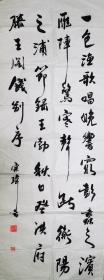 一色漁歌唱晚響窮彭蠡之濱
雁陣驚寒聲斷衡陽
之浦節録王勃秋日登洪府
滕王閣餞別序